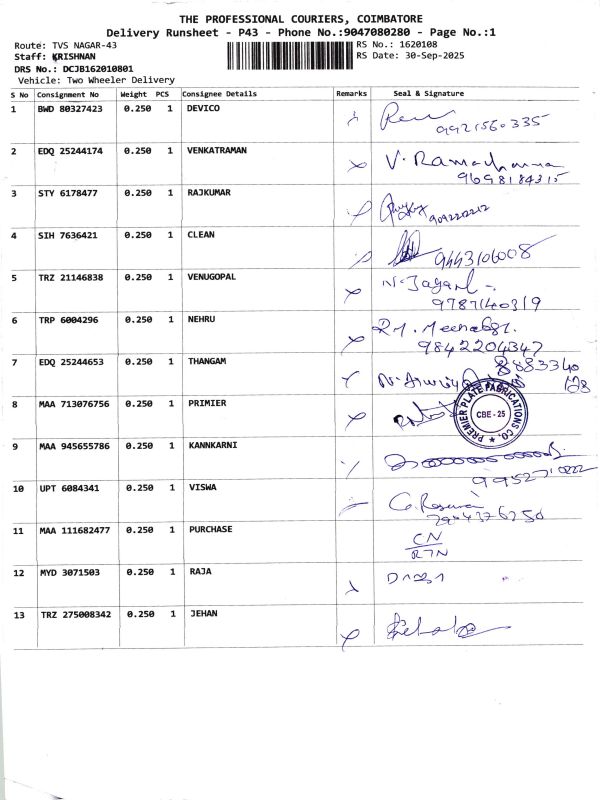 THE PROFESSIONAL COURIERS, COIMBATORE
Delivery Runsheet - P43 - Phone No.:9047080280 - Page No.:1
Route: TVS NAGAR-43
RS No.: 1620108
Staff: KRISHNAN
RS Date: 30-Sep-2025
DRS No.: DCJB162010801
Vehicle: Two Wheeler Delivery
S No Consignment No Weight PCS Consignee Details Remarks Seal & Signature
1 BWD 80327423 0.250 1 DEVICO
9921560335
2 EDQ 25244174 0.250 1 VENKATRAMAN V. Ramachandran
9698184315
3 STY 6178477 0.250 1 RAJKUMAR
4 SIH 7636421 0.250 1 CLEAN 9443106008
5 TRZ 21146838 0.250 1 VENUGOPAL
9787140319
6 TRP 6004296 0.250 1 NEHRU
9842204347
7 EDQ 25244653 0.250 1 THANGAM
8883340
128
8 MAA 713076756 0.250 1 PRIMIER PREMIER PLATE FABRICATIONS CO. CBE - 25
9 MAA 945655786 0.250 1 KANNKARNI
10 UPT 6084341 0.250 1 VISWA
11 MAA 111682477 0.250 1 PURCHASE CN
RTN
12 MYD 3071503 0.250 1 RAJA
13 TRZ 275008342 0.250 1 JEHAN